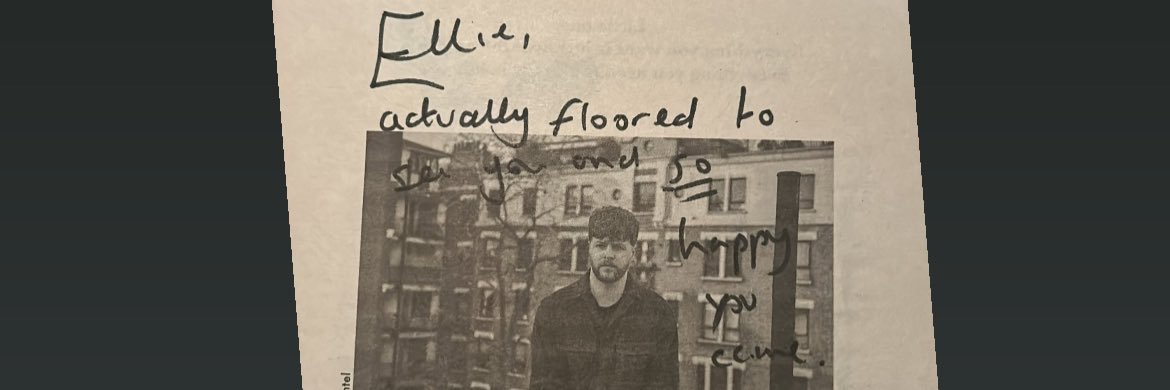 Ellie,
actually floored to
see you and so
happy
you
came.